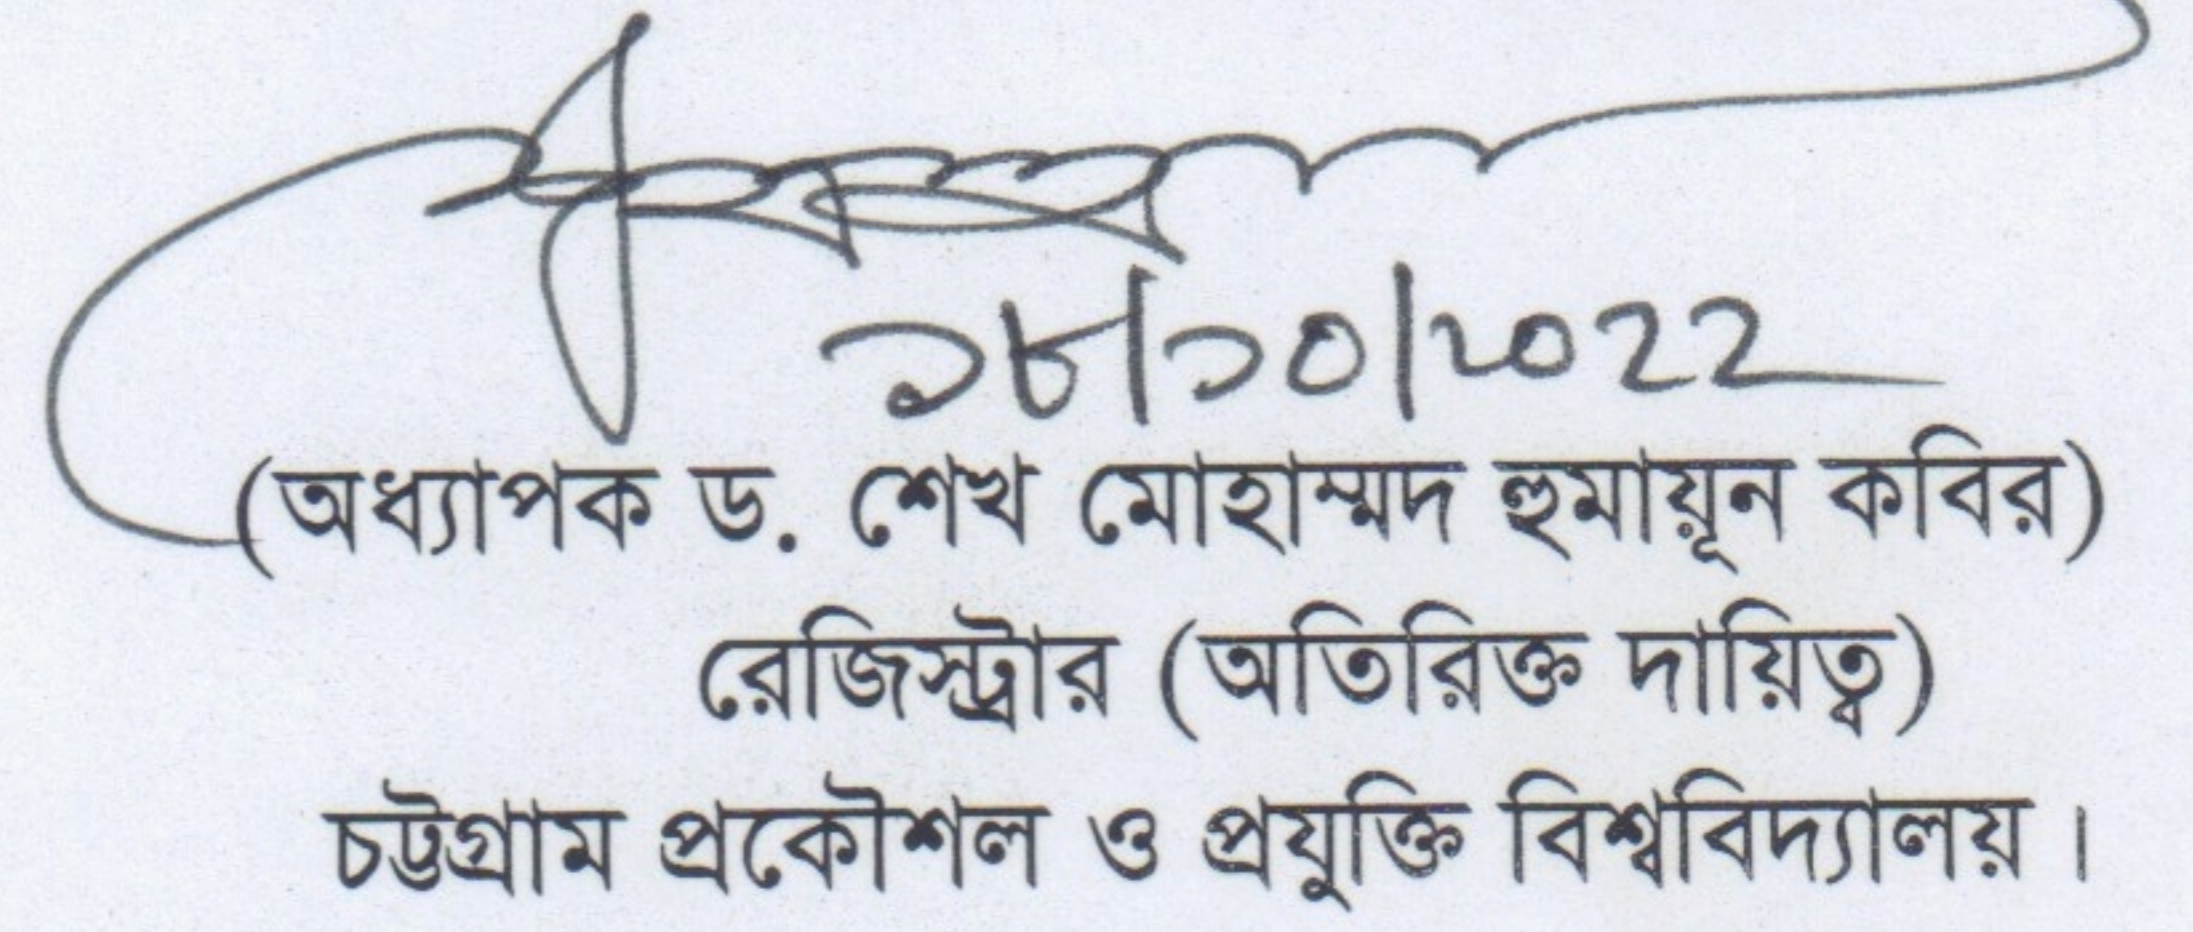 ১৮/১০/২০২২
(অধ্যাপক ড. শেখ মোহাম্মদ হুমায়ূন কবির)
রেজিস্ট্রার (অতিরিক্ত দায়িত্ব)
চট্টগ্রাম প্রকৌশল ও প্রযুক্তি বিশ্ববিদ্যালয়।